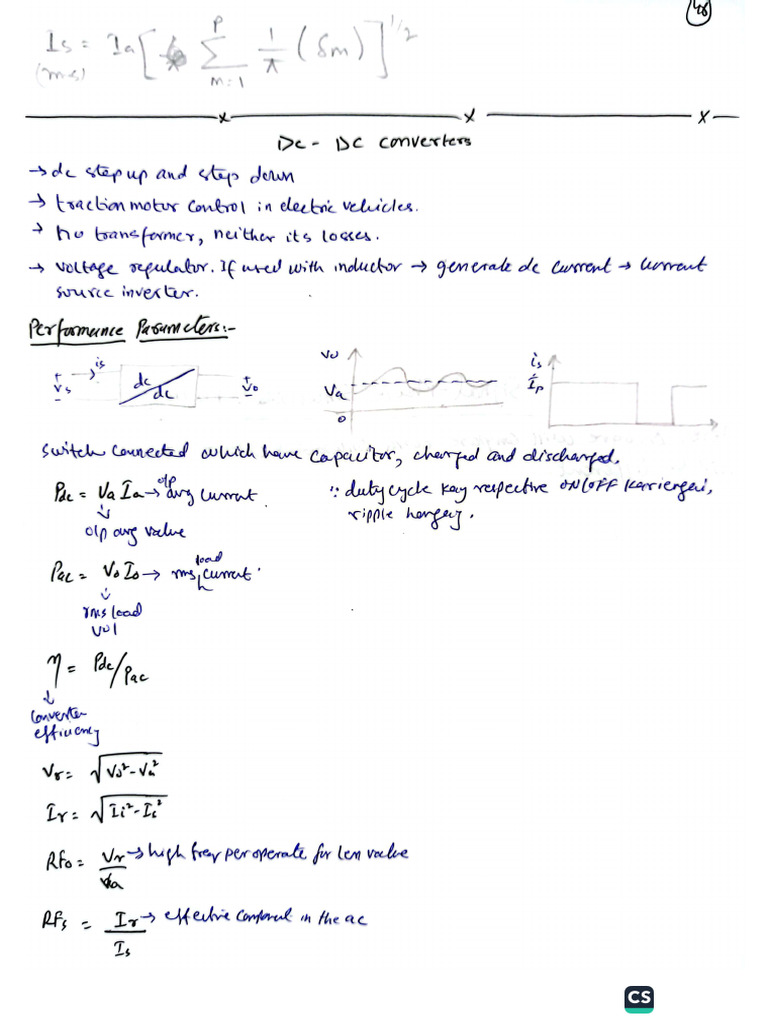 48
Is = Ia [ Σ 1/π (δm) ]^1/2
(rms) P m=1
x x x
Dc - DC converters
→ dc step up and step down
→ traction motor control in electric vehicles.
→ no transformer, neither its losses.
→ voltage regulator. If used with inductor → generate dc current → current
source inverter.
Performance Parameters:-
+ Vs - → is dc/dc + Vo -
vo Va 0
is Ip
Switch connected which have capacitor, charged and discharged,
Pdc = Va Ia → o/p avg current. ∵ duty cycle kay respective ON/OFF
↓ ripple
o/p avg value
Pac = Vo Io → rms load current.
↓
rms load
vol
η = Pdc/Pac
↓
Converter
efficiency
Vr = √Vo²-Va²
Ir = √Ii²-Is²
RFo = Vr/Va → high freq per operate for len value
RFs = Ir/Is → effective in the ac
CS